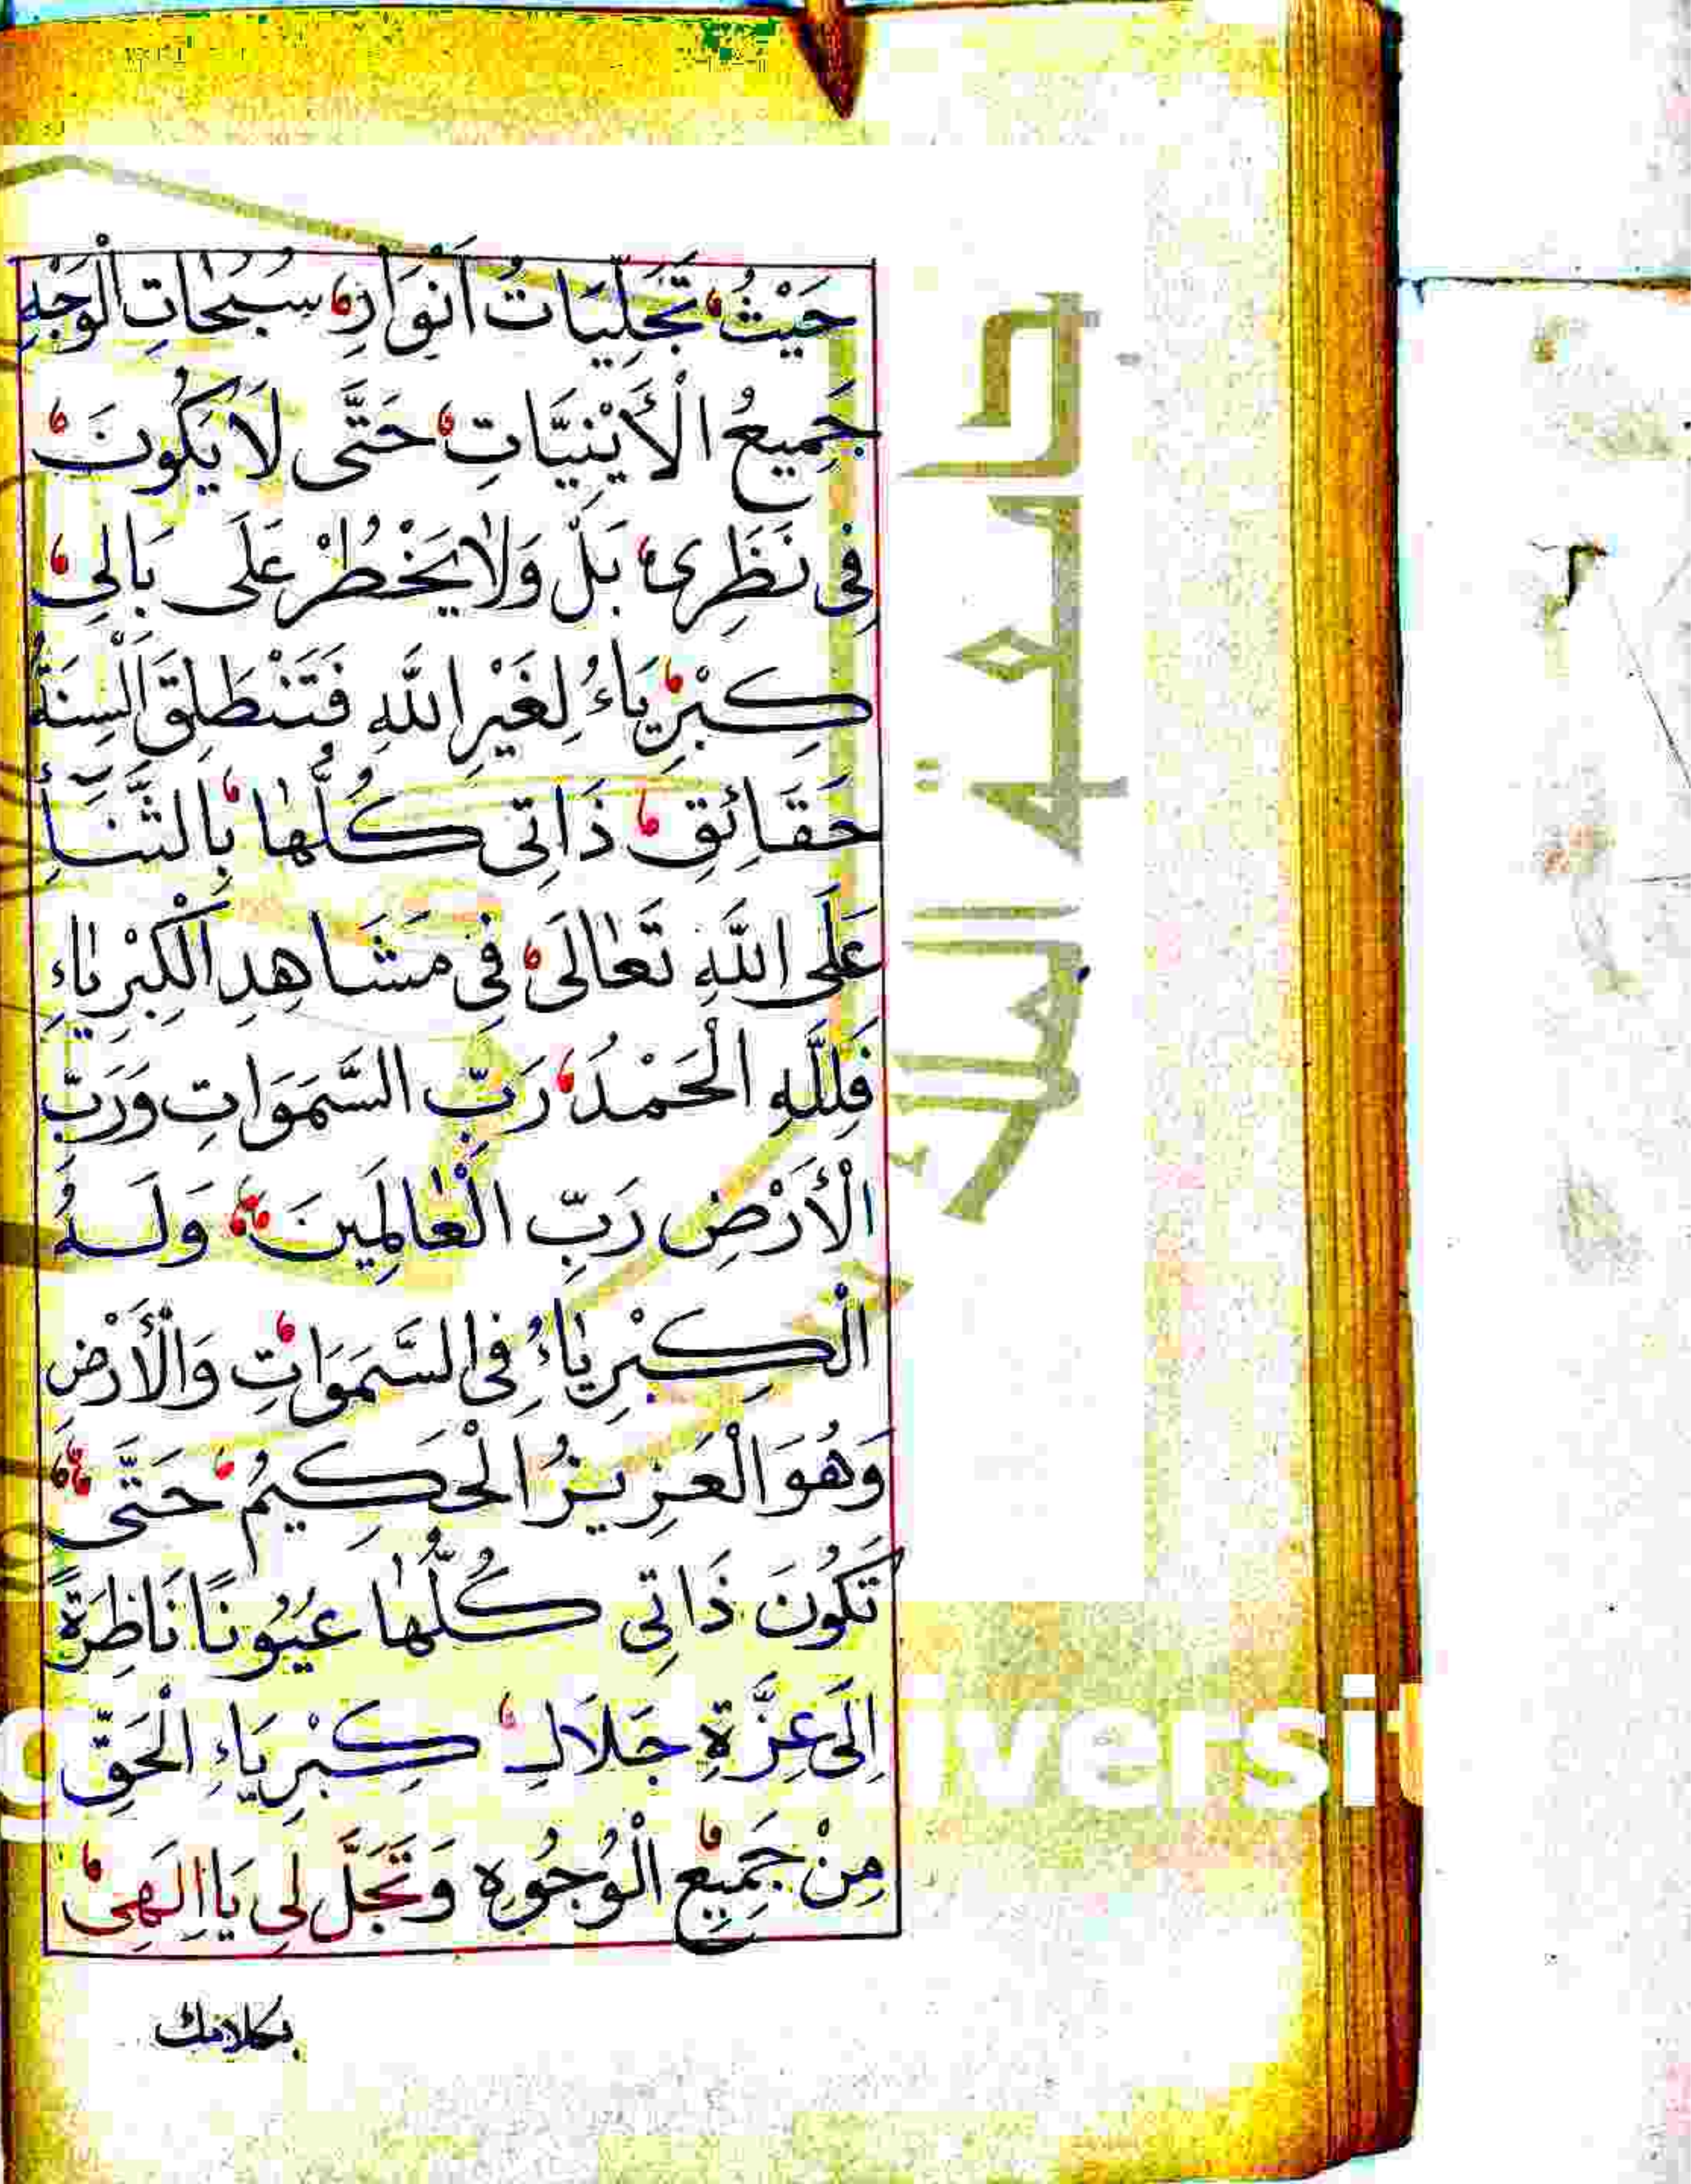 حَيْثُ تَجَلِّيَاتُ اَنْوَارِ سُبُحَاتِ الْوَجْهِ
جَمِيعُ الْأَيْنِيَّاتِ حَتَّى لَا يَكُونَ
فِي نَظَرِى بَلْ وَلَا يَخْطُرْ عَلَى بَالِى
كِبْرِيَاءُ لِغَيْرِ اللَّهِ فَتَنْطَلِقَ اَلْسِنَةُ
حَقَائِقِ ذَاتِى كُلُّهَا بِالثَّنَاءِ
عَلَى اللَّهِ تَعَالَى فِى مَشَاهِدِ الْكِبْرِيَاءِ
فَلِلَّهِ الْحَمْدُ رَبِّ السَّمَوَاتِ وَرَبِّ
الْأَرْضِ رَبِّ الْعَالَمِينَ وَلَهُ
الْكِبْرِيَاءُ فِى السَّمَوَاتِ وَالْأَرْضِ
وَهُوَ الْعَزِيزُ الْحَكِيمُ حَتَّى
تَكُونَ ذَاتِى كُلُّهَا عُيُونًا نَاظِرَةً
اِلَى عِزَّةِ جَلَالِ كِبْرِيَاءِ الْحَقِّ
مِنْ جَمِيعِ الْوُجُوهِ وَتَجَلَّ لِى يَا اِلَهِى
بكلامك
جامعة الملك
g iversit